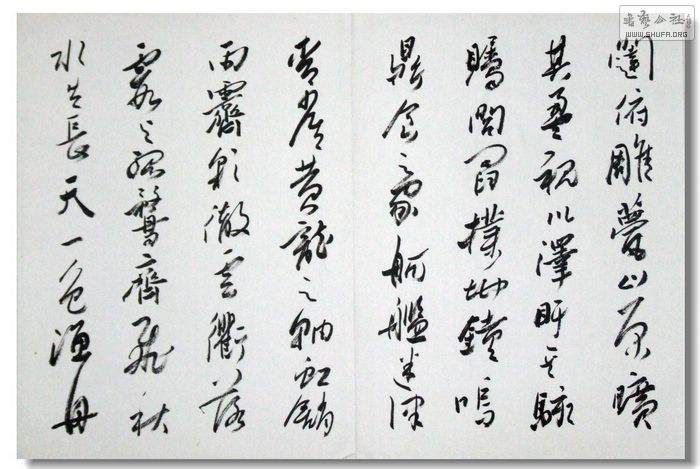 闥俯雕甍山原曠
其盈視川澤盱其駭
矚閭閻撲地鐘鳴
鼎食之家舸艦迷津
青雀黃龍之軸虹銷
雨霽彩徹云衢落
霞与孤鶩齊飛秋
水共長天一色漁舟
书艺公社
WWW.SHUFA.ORG